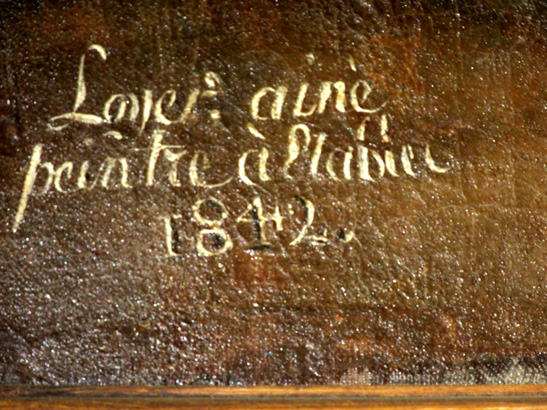 Loyer ainè
peintre à Stabier
1842